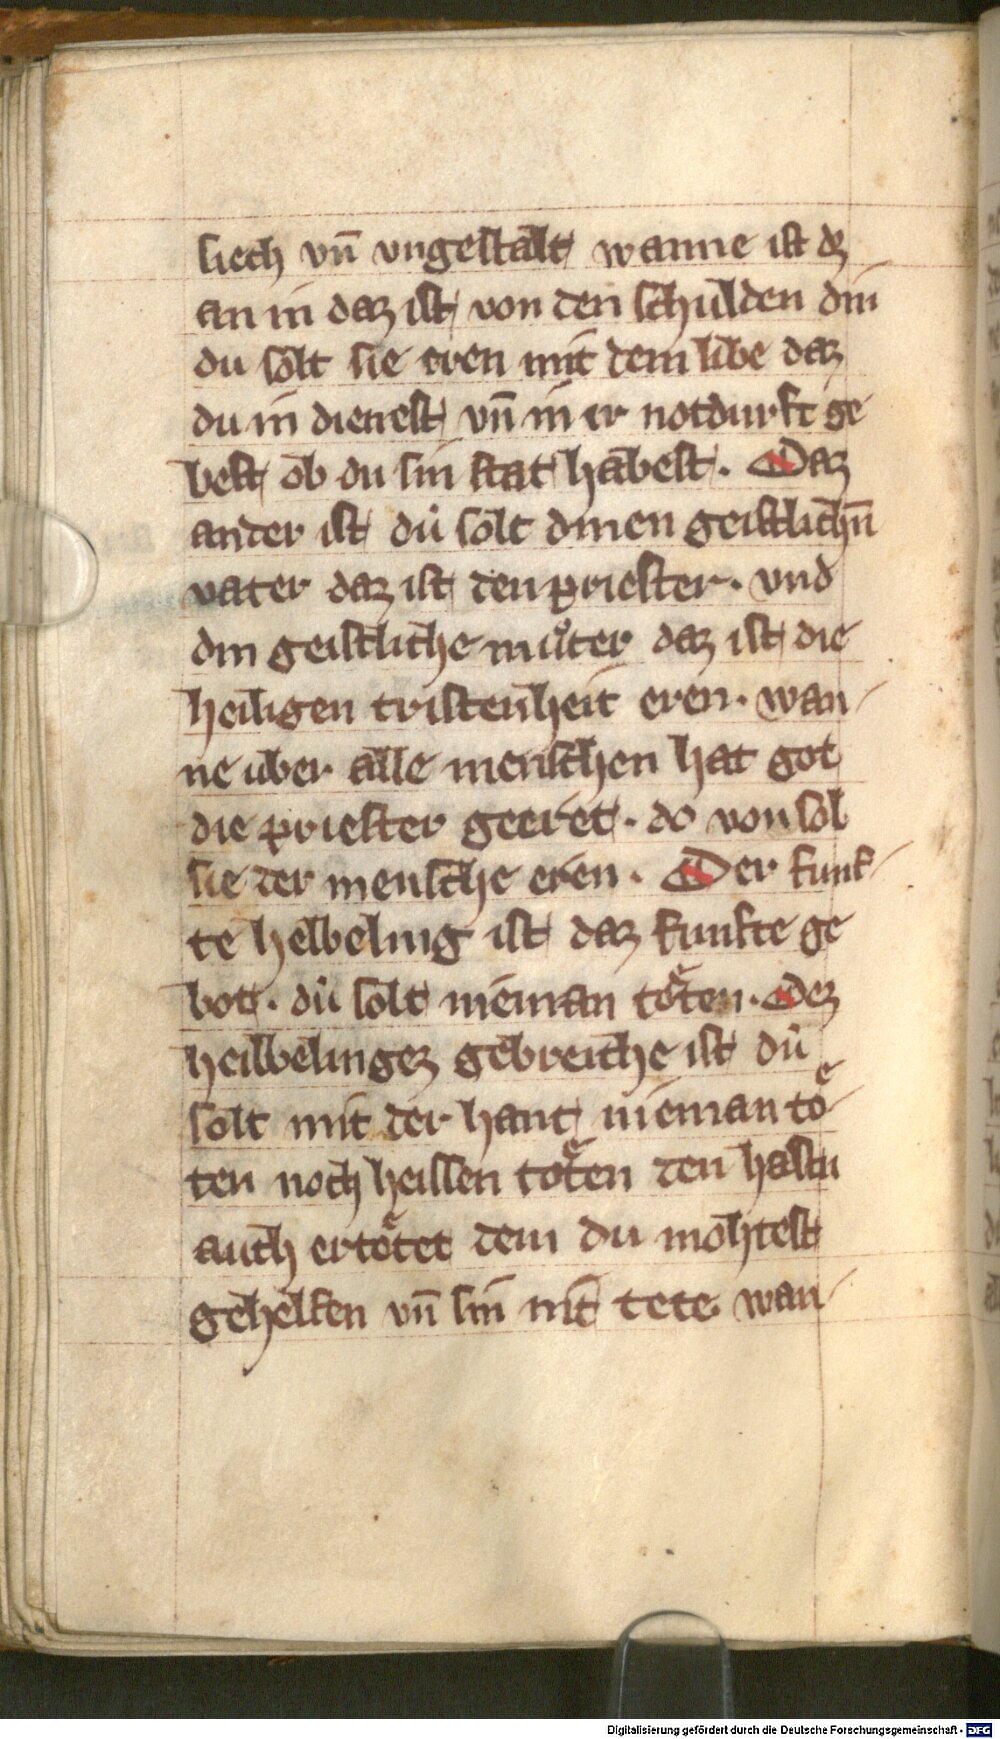 siech vn̄ vngestalt wanne ist dz
an in daz ist von den schulden din
du solt sie eren mit dem libe daz
du in dienest vn̄ in ir notdurft ge
best ob du sin stat habest. Daz
ander ist dů solt dinen geistlichn̄
vater daz ist den priester. vnd
din geistliche můter daz ist die
heiligen cristenheit eren. wan
ne uber alle menschen hat got
die priester geeret. do von sol
sie der mensche eren. Der funf
te helbeling ist daz funfte ge
bot. dů solt nieman toͤten. Dez
heilbelingez gebreiche ist dů
solt mit der hant nieman toͤ
ten noch heissen toͤten den hastu
auch ertoͤtet dem du mohtest
gehelfen vn̄ sin nit tete wan
Digitalisierung gefördert durch die Deutsche Forschungsgemeinschaft - DFG